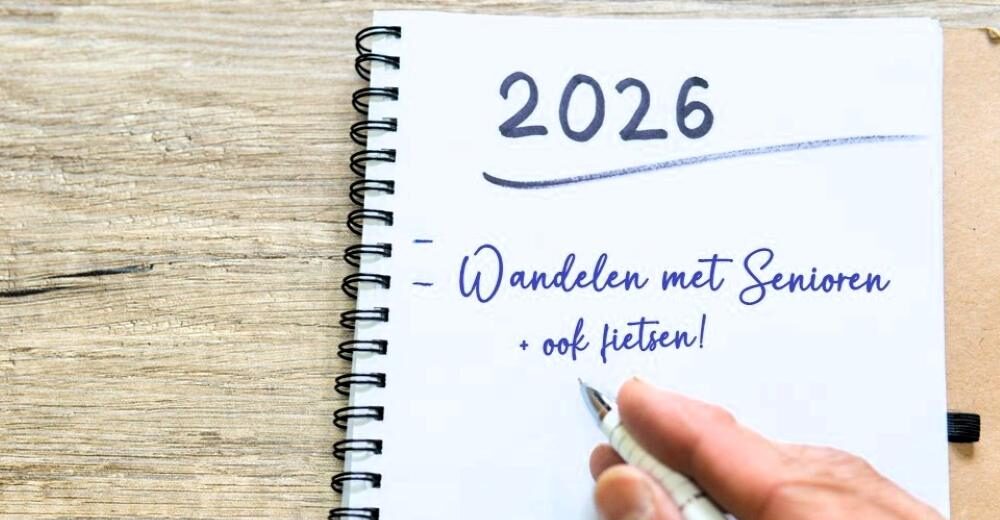 2026
- Wandelen met Senioren
+ ook fietsen!